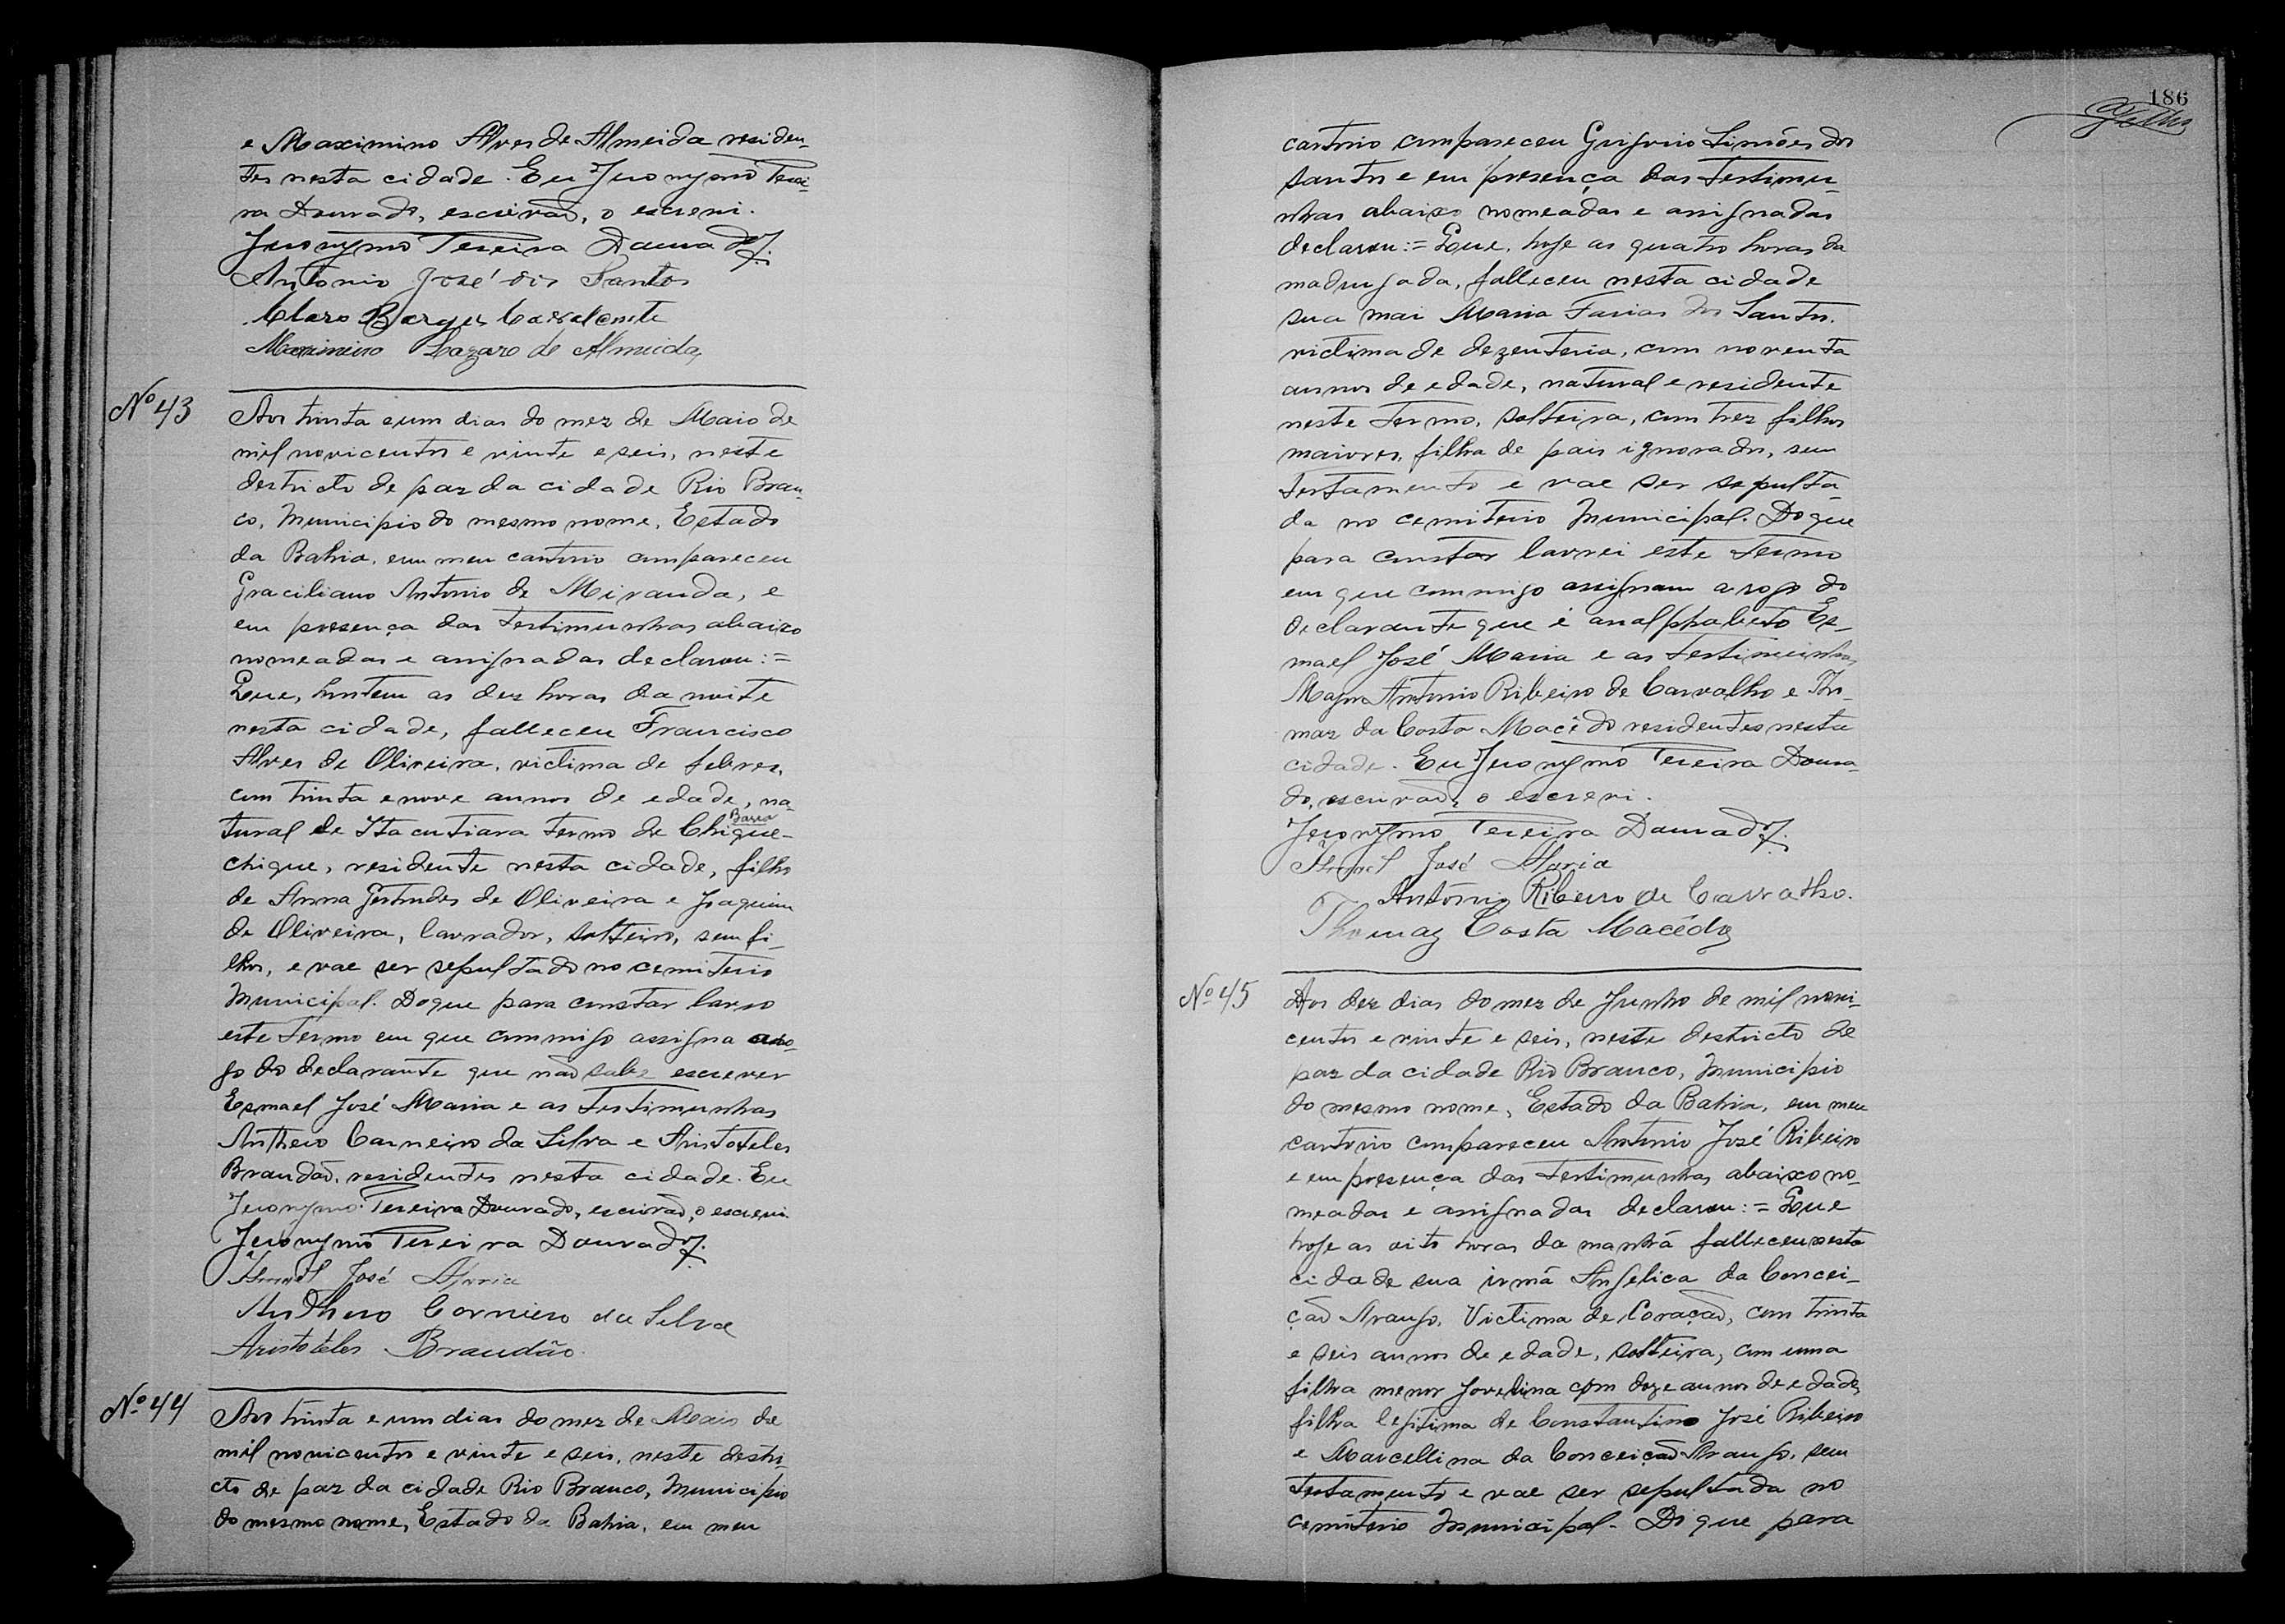 e Maximino Alves de Almeida residen-
tes nesta cidade. Eu Jeronymo Teixei-
ra Dourado, escrivão, o escrevi.
Jeronymo Teixeira Dourado
Antonio José dos Santos
Claro Borges Cavalcante
Maximino Lazaro de Almeida
Nº 43
Aos trinta e um dias do mez de Maio de
mil novicentos e vinte e seis, neste
destricto de paz da cidade Rio Bran-
co, Municipio do mesmo nome, Estado
da Bahia, em meu cartorio compareceu
Graciliano Antonio de Miranda, e
em presença das testimunhas abaixo
nomeadas e assignadas declarou:=
Que, hontem as dez horas da noite
nesta cidade, falleceu Francisco
Alves de Oliveira, victima de febres,
com trinta e nove annos de edade, na-
Barra
tural de Itacutiara termo de Chique-
chique, residente nesta cidade, filho
de Anna Gertrudes de Oliveira e Joaquim
de Oliveira, lavrador, solteiro, sem fi-
lhos, e vae ser sepultado no cemiterio
Municipal. Do que para constar lavro
este termo em que commigo assigna a ro-
go do declarante que não sabe escrever
Esmael José Maria e as testimunhas
Anthero Carneiro da Silva e Aristoteles
Brandão, residentes nesta cidade. Eu
Jeronymo Teixeira Dourado, escrivão, o escrevi.
Jeronymo Teixeira Dourado
José Maria
Anthero Carneiro da Silva
Aristoteles Brandão
Nº 44
Aos trinta e um dias do mez de Maio de
mil novicentos e vinte e seis, neste destri-
cto de paz da cidade Rio Branco, Municipio
do mesmo nome, Estado da Bahia, em meu
186
cartorio compareceu Grigorio Simões dos
Santos e em presença das testimu-
nhas abaixo nomeadas e assignadas
declarou:= Que, hoje as quatro horas da
madrugada, falleceu nesta cidade
sua mai Maria Farias dos Santos.
victima de dezenteria, com noventa
annos de edade, natural e residente
neste termo, solteira, com trez filhos
maiores, filha de pais ignorados, sem
testamento e vae ser sepulta-
da no cemiterio Municipal. Do que
para constar lavrei este termo
em que commigo assignam a rogo do
declarante que é analphabeto Es-
mael José Maria e as testimunhas
Antonio Ribeiro de Carvalho e Tho-
maz da Costa Macêdo residentes nesta
cidade. Eu Jeronymo Teixeira Doura-
do, escrivão, o escrevi.
Jeronymo Teixeira Dourado
José Maria
Antônio Ribeiro de Carvalho.
Thomaz Costa Macêdo
Nº 45
Aos dez dias do mez de Junho de mil novi-
centos e vinte e seis, neste destricto de
paz da cidade Rio Branco, Municipio
do mesmo nome, Estado da Bahia, em meu
cartorio compareceu Antonio José Ribeiro
e em presença das testimunhas abaixo no-
meadas e assignadas declarou:= Que
hoje as oito horas da manhã falleceu nesta
cidade sua irmã Angelica da Concei-
ção Araujo, Victima de Coração, com trinta
e seis annos de edade, solteira, com uma
filha menor Jovelina com doze annos de edade,
filha legitima de Constantino José Ribeiro
e Marcellina da Conceição Araujo, sem
testamento e vae ser sepultada no
cemiterio Municipal. Do que para